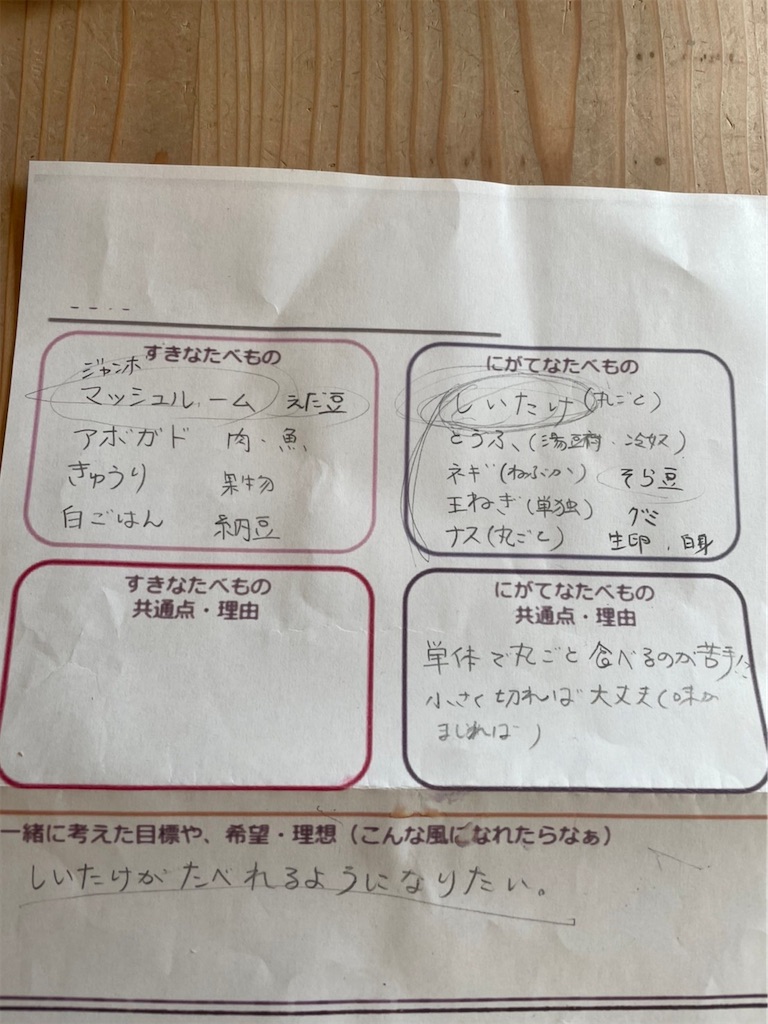 すきなたべもの
ジャンボ
マッシュルーム えだ豆
アボガド 肉・魚
きゅうり 果物
白ごはん 納豆
にがてなたべもの
しいたけ(丸ごと)
とうふ、(湯豆腐・冷奴)
ネギ(ねぶか) そら豆
玉ねぎ(単独) グミ
ナス(丸ごと) 生卵、白身
すきなたべもの
共通点・理由
にがてなたべもの
共通点・理由
単体で丸ごと食べるのが苦手!?
小さく切れば大丈夫(味が
まじれば)
一緒に考えた目標や、希望・理想(こんな風になれたらなぁ)
しいたけがたべれるようになりたい。